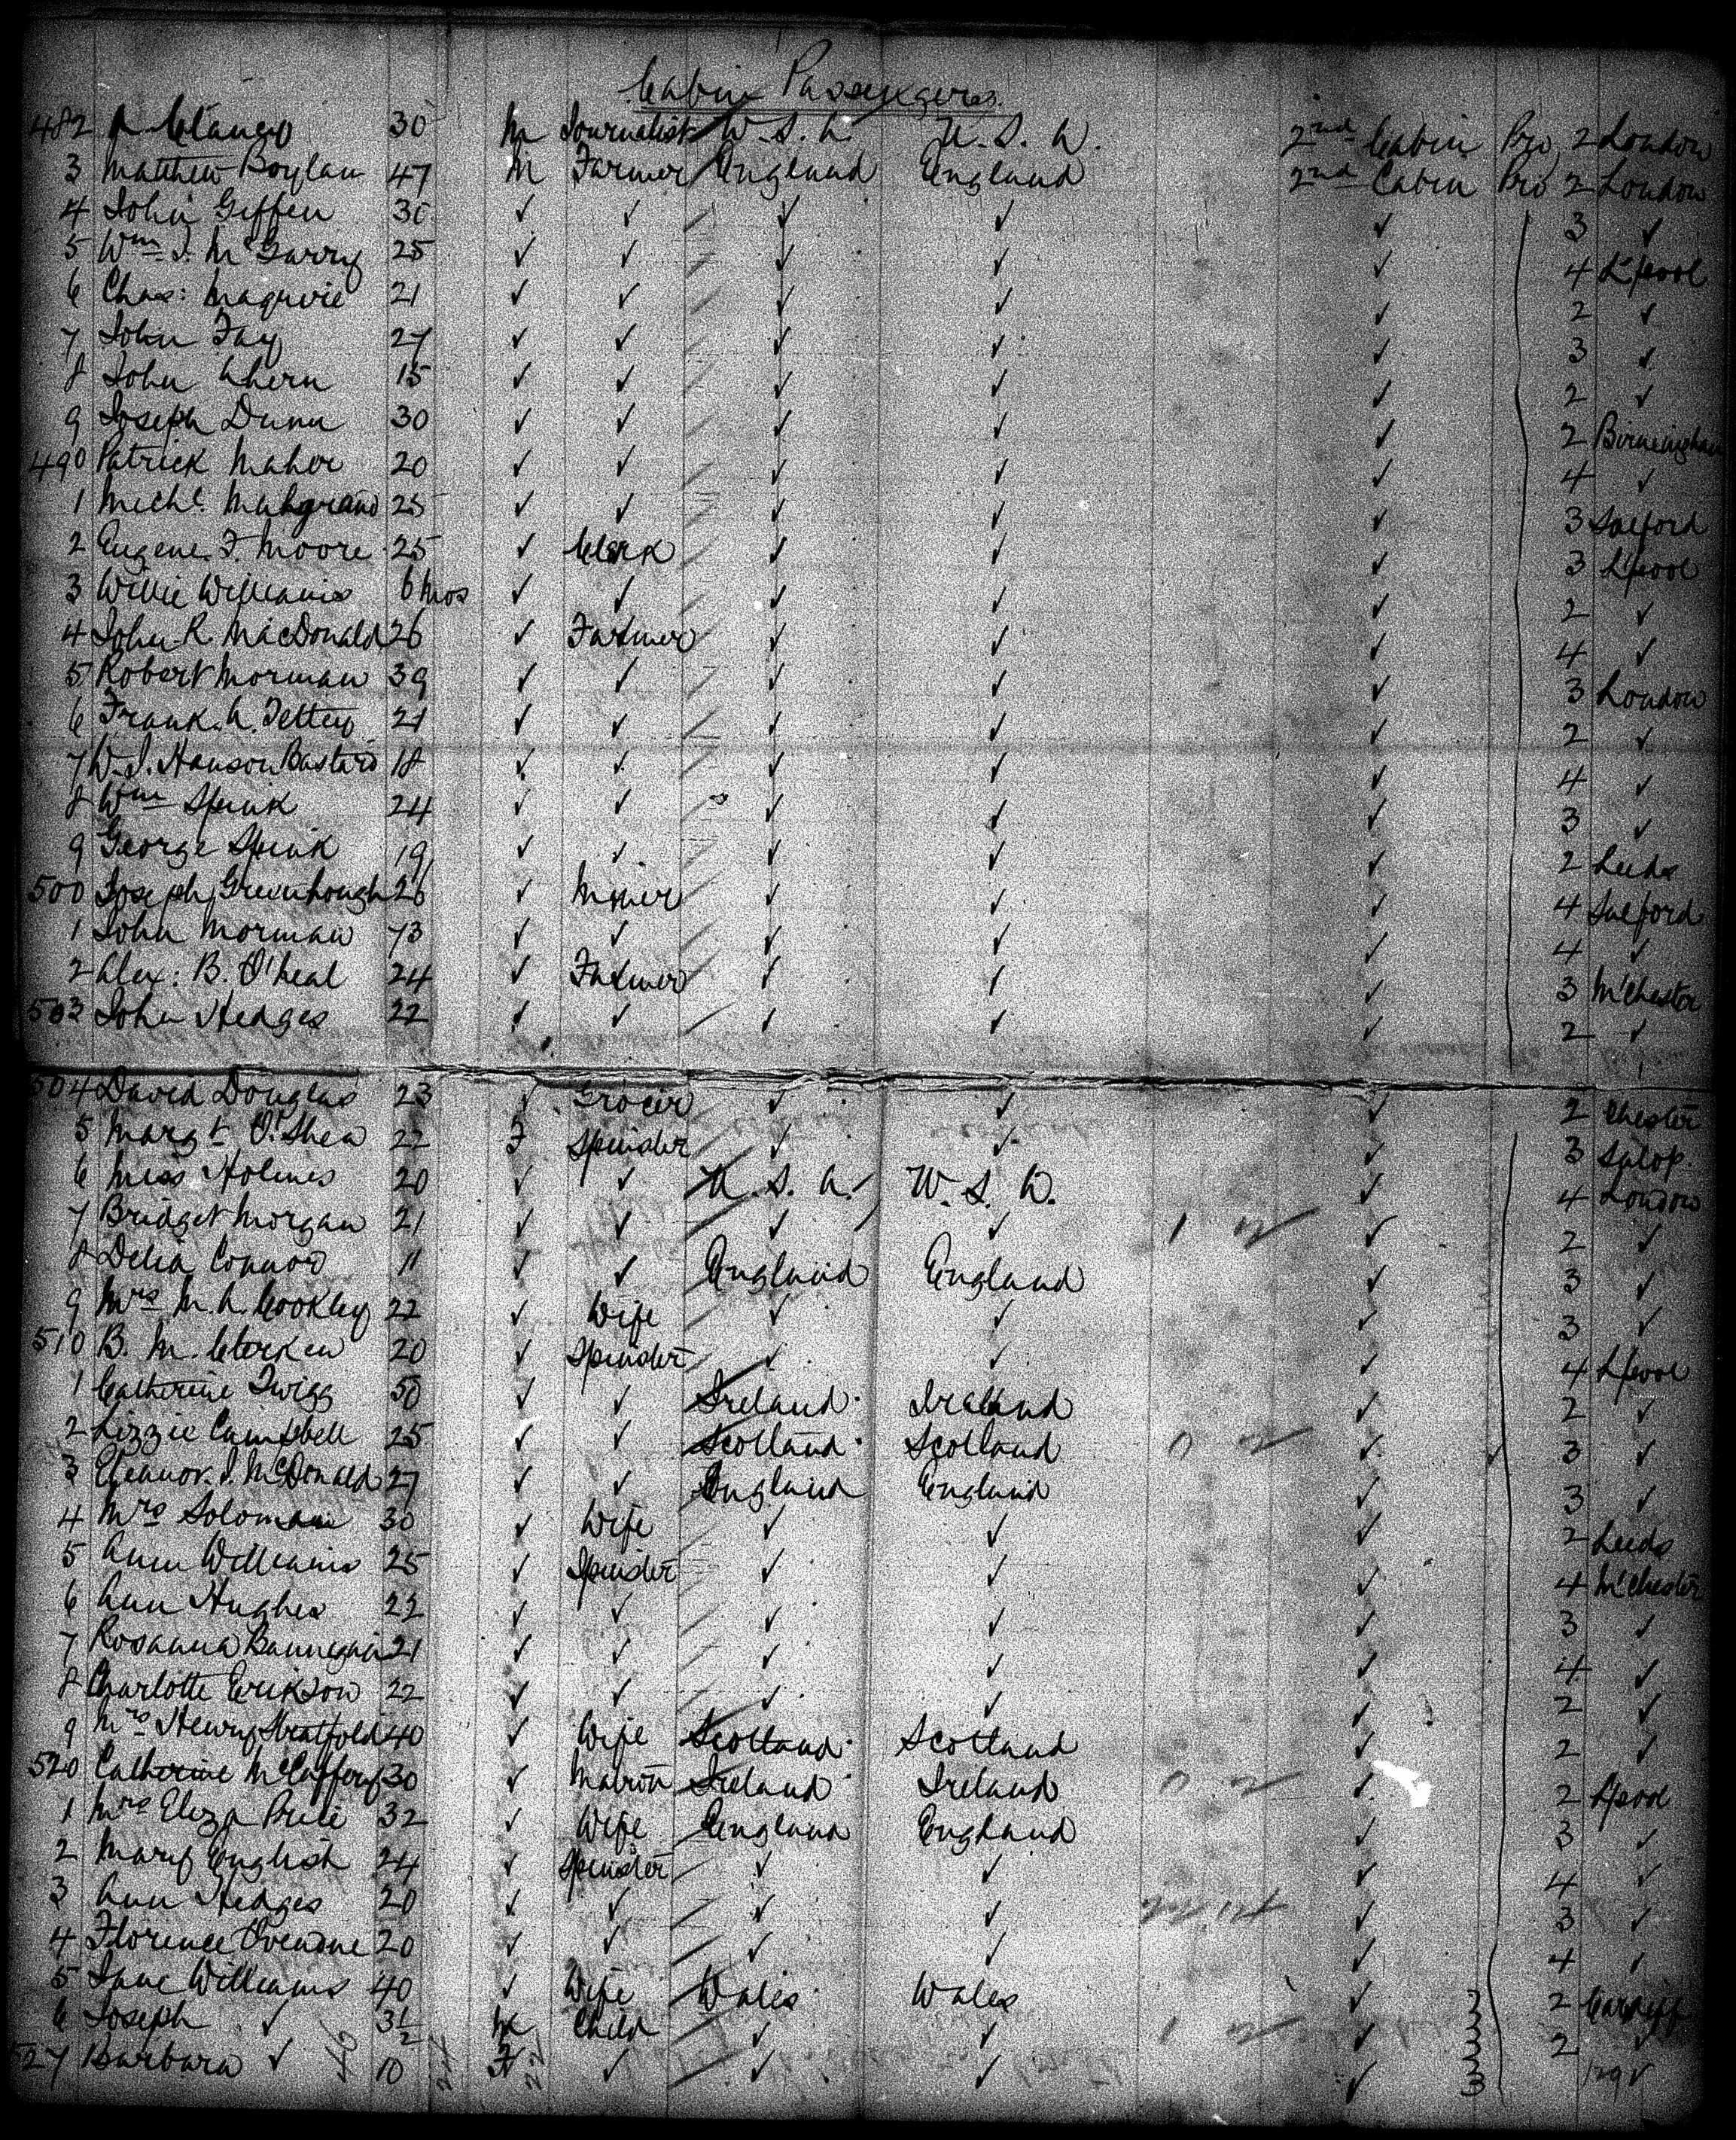 Cabin Passengers
482 A Clancy 30 M Journalist U. S. A. U. S. A. 2nd Cabin Pro 2 London
3 Matthew Boylan 47 M Farmer England England 2nd Cabin Pro 2 London
4 John Giffen 30 ✓ ✓ ✓ ✓ ✓ 3 ✓
5 Wm J. McGarry 25 ✓ ✓ ✓ ✓ ✓ 4 L'pool
6 Chas: Maguire 21 ✓ ✓ ✓ ✓ ✓ 2 ✓
7 John Fay 27 ✓ ✓ ✓ ✓ ✓ 3 ✓
8 John Ahern 15 ✓ ✓ ✓ ✓ ✓ 2 ✓
9 Joseph Dunn 30 ✓ ✓ ✓ ✓ ✓ 2 Birmingham
490 Patrick Maher 20 ✓ ✓ ✓ ✓ ✓ 4 ✓
1 Michl. 25 ✓ ✓ ✓ ✓ ✓ 3 Salford
2 Eugene F. Moore 25 ✓ Clerk ✓ ✓ ✓ 3 L'pool
3 Willie Williams 6 mos ✓ ✓ ✓ ✓ ✓ 2 ✓
4 John R. MacDonald 26 ✓ Farmer ✓ ✓ ✓ 4 ✓
5 Robert Morman 39 ✓ ✓ ✓ ✓ ✓ 3 London
6 Frank A. Tettey 21 ✓ ✓ ✓ ✓ ✓ 2 ✓
7 W. J. Hanson Bastard 18 ✓ ✓ ✓ ✓ ✓ 4 ✓
8 Wm Spink 24 ✓ ✓ ✓ ✓ ✓ 3 ✓
9 George Spink 19 ✓ ✓ ✓ ✓ ✓ 2 Leeds
500 Joseph Greenhough 26 ✓ Miner ✓ ✓ ✓ 4 Salford
1 John Morman 73 ✓ ✓ ✓ ✓ ✓ 4 ✓
2 Alex: B. O'Neal 24 ✓ Farmer ✓ ✓ ✓ 3 M'Chester
503 John Hedges 22 ✓ ✓ ✓ ✓ ✓ 2 ✓
504 David Douglas 23 ✓ Grocer ✓ ✓ ✓ 2 Chester
5 Margt O'Shea 22 F Spinster ✓ ✓ ✓ 3 Salop.
6 Miss Holmes 20 ✓ ✓ U. S. A. U. S. A. ✓ 4 London
7 Bridget Morgan 21 ✓ ✓ ✓ ✓ 1 2 ✓ 2 ✓
8 Delia Connor 11 ✓ ✓ England England ✓ 3 ✓
9 Mrs M. A. Cookley 22 ✓ Wife ✓ ✓ ✓ 3 ✓
510 B. M. Clerken 20 ✓ Spinster ✓ ✓ ✓ 4 L'pool
1 Catherine Twigg 50 ✓ ✓ Ireland Ireland ✓ 2 ✓
2 Lizzie Campbell 25 ✓ ✓ Scotland Scotland 0 2 ✓ ✓ 3 ✓
3 Eleanor J. McDonald 27 ✓ ✓ England England ✓ 3 ✓
4 Mrs Solomon 30 ✓ Wife ✓ ✓ ✓ 2 Leeds
5 Ann Williams 25 ✓ Spinster ✓ ✓ ✓ 4 M'Chester
6 Ann Hughes 22 ✓ ✓ ✓ ✓ ✓ 3 ✓
7 Rosanna Bannegan 21 ✓ ✓ ✓ ✓ ✓ 4 ✓
8 Charlotte Erikson 22 ✓ ✓ ✓ ✓ ✓ 2 ✓
9 Mrs Henry Stratfold 40 ✓ Wife Scotland Scotland ✓ 2 ✓
520 Catherine McCaffery 30 ✓ Matron Ireland Ireland 0 2 ✓ 2 L'pool
1 Mrs Eliza Price 32 ✓ Wife England England ✓ 3 ✓
2 Mary English 24 ✓ Spinster ✓ ✓ ✓ 4 ✓
3 Ann Hedges 20 ✓ ✓ ✓ ✓ 22 14 ✓ 3 ✓
4 Florence 20 ✓ ✓ ✓ ✓ ✓ 4 ✓
5 Jane Williams 40 ✓ Wife Wales Wales ✓ 2 Cardiff
6 Joseph ✓ 3½ M Child ✓ ✓ 1 2 ✓ 2 ✓
527 Barbara ✓ 10 F ✓ ✓ ✓ ✓ ✓